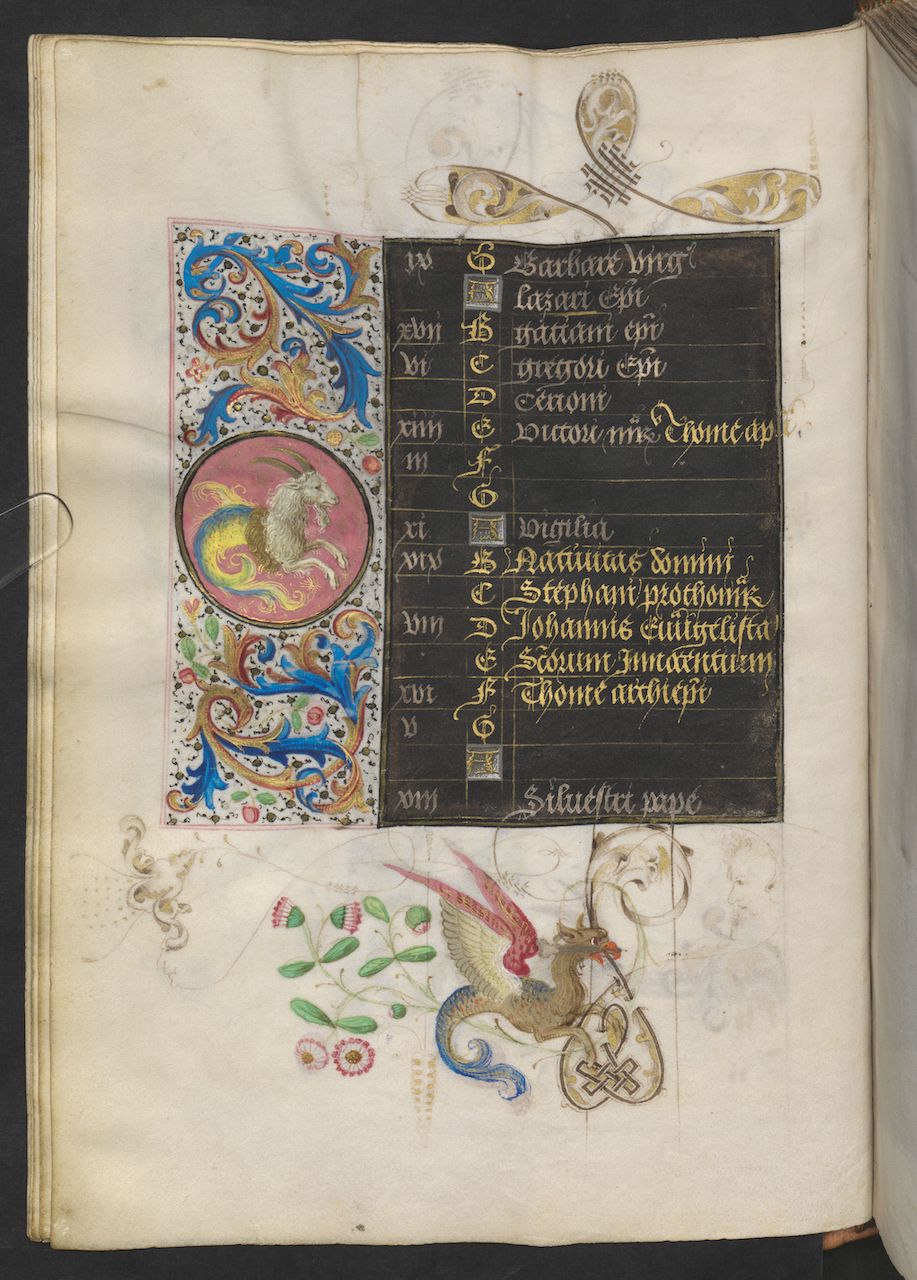 ix G Barbare virg
A lazari Epi
xvii B gatiani epi
vi C gregori Epi
D
xiiii E Victori mr Thome ap
iii F
G
xi A Vigilia
xix B Natiuitas domini
C Stephani prothomr
viii D Johannis Euugelista
E Scorum Innocentium
xvi F Thome archiepi
v G
A
xiii Siluestri pape